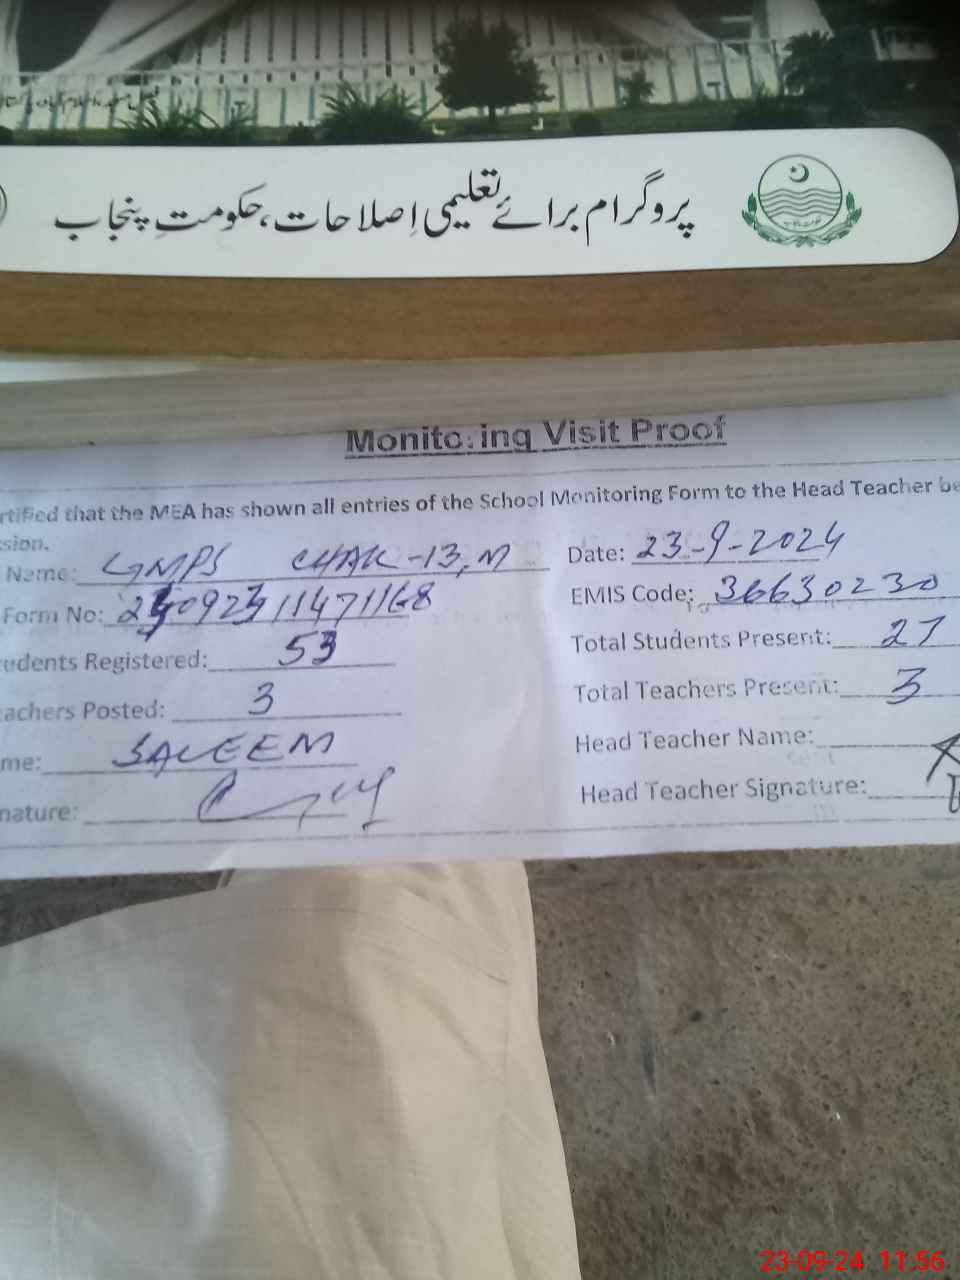 پروگرام برائے تعلیمی اِصلاحات، حکومتِ پنجاب
Monitoring Visit Proof
rtified that the MEA has shown all entries of the School Monitoring Form to the Head Teacher be
sion.
Name: GMPS CHAK-13,M Date: 23-9-2024
Form No: EMIS Code: 36630230
udents Registered: 53 Total Students Present: 27
achers Posted: 3 Total Teachers Present: 3
me: SALEEM Head Teacher Name:
nature: Head Teacher Signature:
23-09-24 11:56